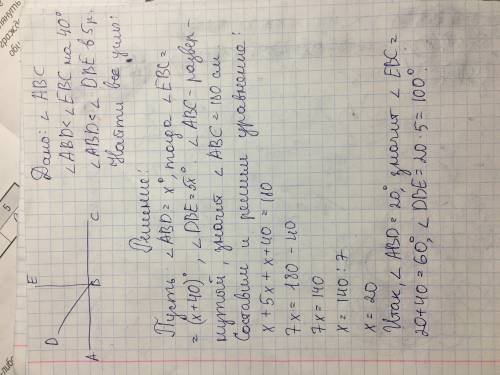 Дано: ∠ ABC
∠ABD < ∠EBC на 40°
∠ABD < ∠ DBE в 5 р.
Найти все углы
E
D
A
B
C
Решение:
Пусть ∠ABD = x°, тогда ∠EBC =
= (x+40)°, ∠DBE = 5x°. ∠ABC - развер-
нутый, значит ∠ABC = 180 ам
Составим и решим уравнение:
x + 5x + x + 40 = 180
7x = 180 - 40
7x = 140
x = 140 : 7
x = 20
Итак, ∠ABD = 20°, значит ∠ EBC =
20+40 = 60°, ∠DBE = 20 · 5 = 100°.
5